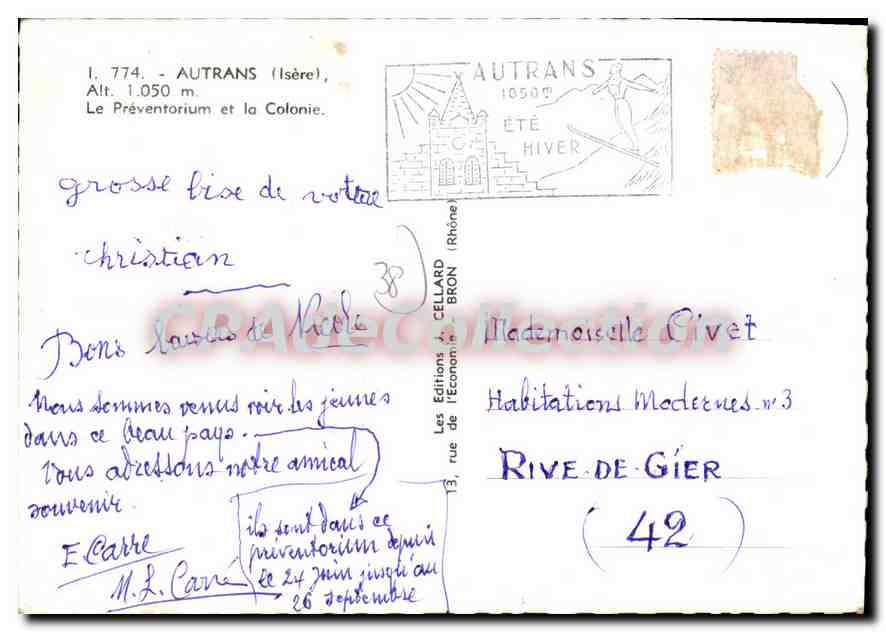 I. 774. - AUTRANS (Isère),
Alt. 1.050 m.
Le Préventorium et la Colonie.
AUTRANS
1050m
ÉTÉ
HIVER
grosse bise de votre
christian
38
Bons baisers de Nicole
Nous sommes venus voir les jeunes
dans ce beau pays.
Vous adressons notre amical
souvenir.
E. Carre
M. L. Carré
ils sont dans ce
préventorium depuis
le 24 Juin jusqu'au
26 septembre
Les Editions J. CELLARD
13, rue de l'Economie - BRON (Rhône)
Mademoiselle Civet
Habitations Modernes n° 3
RIVE-DE-GIER
(42)
CPADeCollection